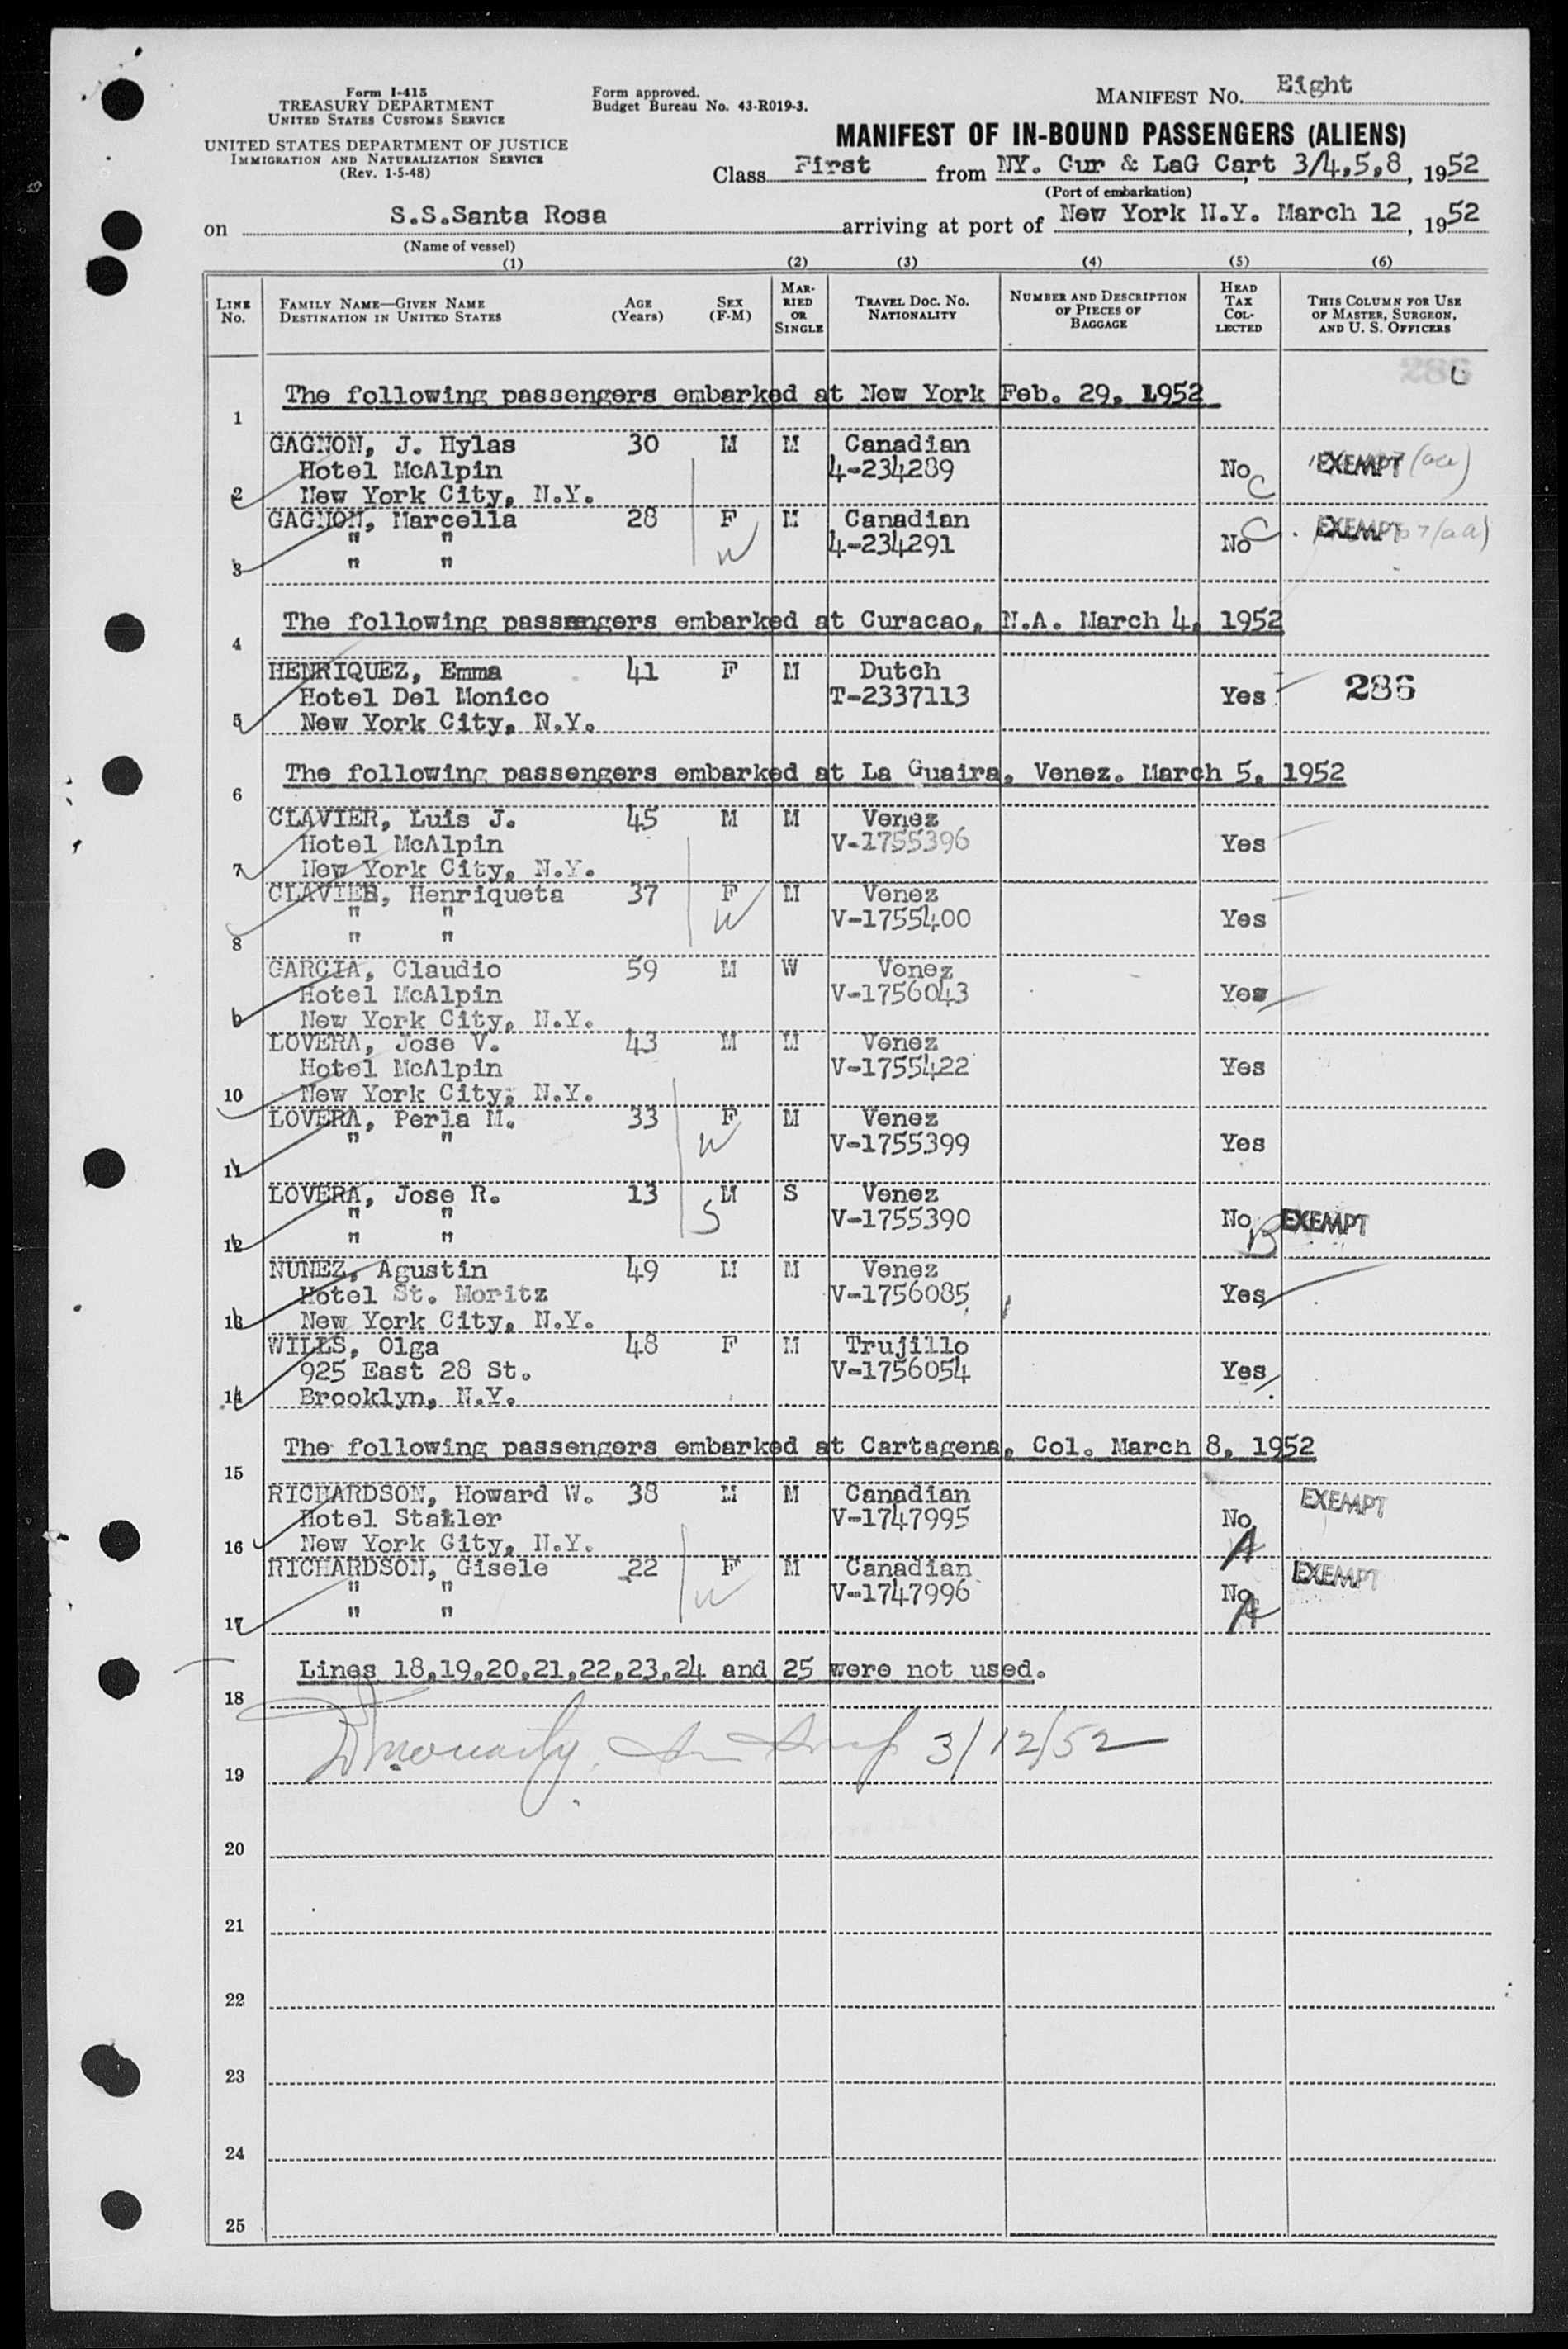 Form I-415
TREASURY DEPARTMENT
UNITED STATES CUSTOMS SERVICE
UNITED STATES DEPARTMENT OF JUSTICE
IMMIGRATION AND NATURALIZATION SERVICE
(Rev. 1-5-48)
Form approved.
Budget Bureau No. 43-R019-3.
MANIFEST NO. Eight
MANIFEST OF IN-BOUND PASSENGERS (ALIENS)
Class First from NY. Cur & LaG Cart 3/4,5,8, 1952
(Port of embarkation)
on S.S.Santa Rosa arriving at port of New York N.Y. March 12, 1952
(Name of vessel)
(1) (2) (3) (4) (5) (6)
LINE No. FAMILY NAME—GIVEN NAME DESTINATION IN UNITED STATES AGE (Years) SEX (F-M) MARRIED OR SINGLE TRAVEL DOC. NO. NATIONALITY NUMBER AND DESCRIPTION OF PIECES OF BAGGAGE HEAD TAX COLLECTED THIS COLUMN FOR USE OF MASTER, SURGEON, AND U. S. OFFICERS
286
1 The following passengers embarked at New York Feb. 29, 1952
GAGNON, J. Hylas 30 M M Canadian
Hotel McAlpin 4-234289 No C EXEMPT (aa)
2 New York City, N.Y.
GAGNON, Marcella 28 F M Canadian
" " W 4-234291 No C EXEMPT 7(aa)
3 " "
4 The following passengers embarked at Curacao, N.A. March 4, 1952
HENRIQUEZ, Emma 41 F M Dutch
Hotel Del Monico T-2337113 Yes 286
5 New York City, N.Y.
6 The following passengers embarked at La Guaira, Venez. March 5, 1952
CLAVIER, Luis J. 45 M M Venez
Hotel McAlpin V-1755396 Yes
7 New York City, N.Y.
CLAVIER, Henriqueta 37 F M Venez
" " W V-1755400 Yes
8 " "
GARCIA, Claudio 59 M W Venez
Hotel McAlpin V-1756043 Yes
9 New York City, N.Y.
LOVERA, Jose V. 43 M M Venez
Hotel McAlpin V-1755422 Yes
10 New York City, N.Y.
LOVERA, Perla M. 33 F M Venez
" " W V-1755399 Yes
11
LOVERA, Jose R. 13 M S Venez
" " S V-1755390 No B EXEMPT
12 " "
NUNEZ, Agustin 49 M M Venez
Hotel St. Moritz V-1756085 Yes
13 New York City, N.Y.
WILLS, Olga 48 F M Trujillo
925 East 28 St. V-1756054 Yes
14 Brooklyn, N.Y.
15 The following passengers embarked at Cartagena, Col. March 8, 1952
RICHARDSON, Howard W. 38 M M Canadian EXEMPT
Hotel Statler V-1747995 No A
16 New York City, N.Y.
RICHARDSON, Gisele 22 F M Canadian EXEMPT
" " W V-1747996 No A
17 " "
Lines 18,19,20,21,22,23,24 and 25 were not used.
18
3/12/52
19
20
21
22
23
24
25